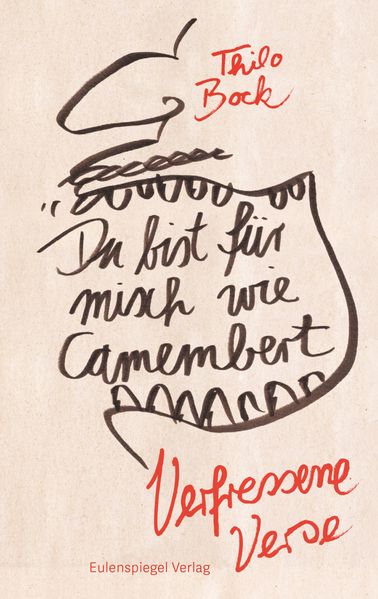 Thilo
Bock
"Du bist für
misch wie
Camembert
Verfressene
Verse
Eulenspiegel Verlag